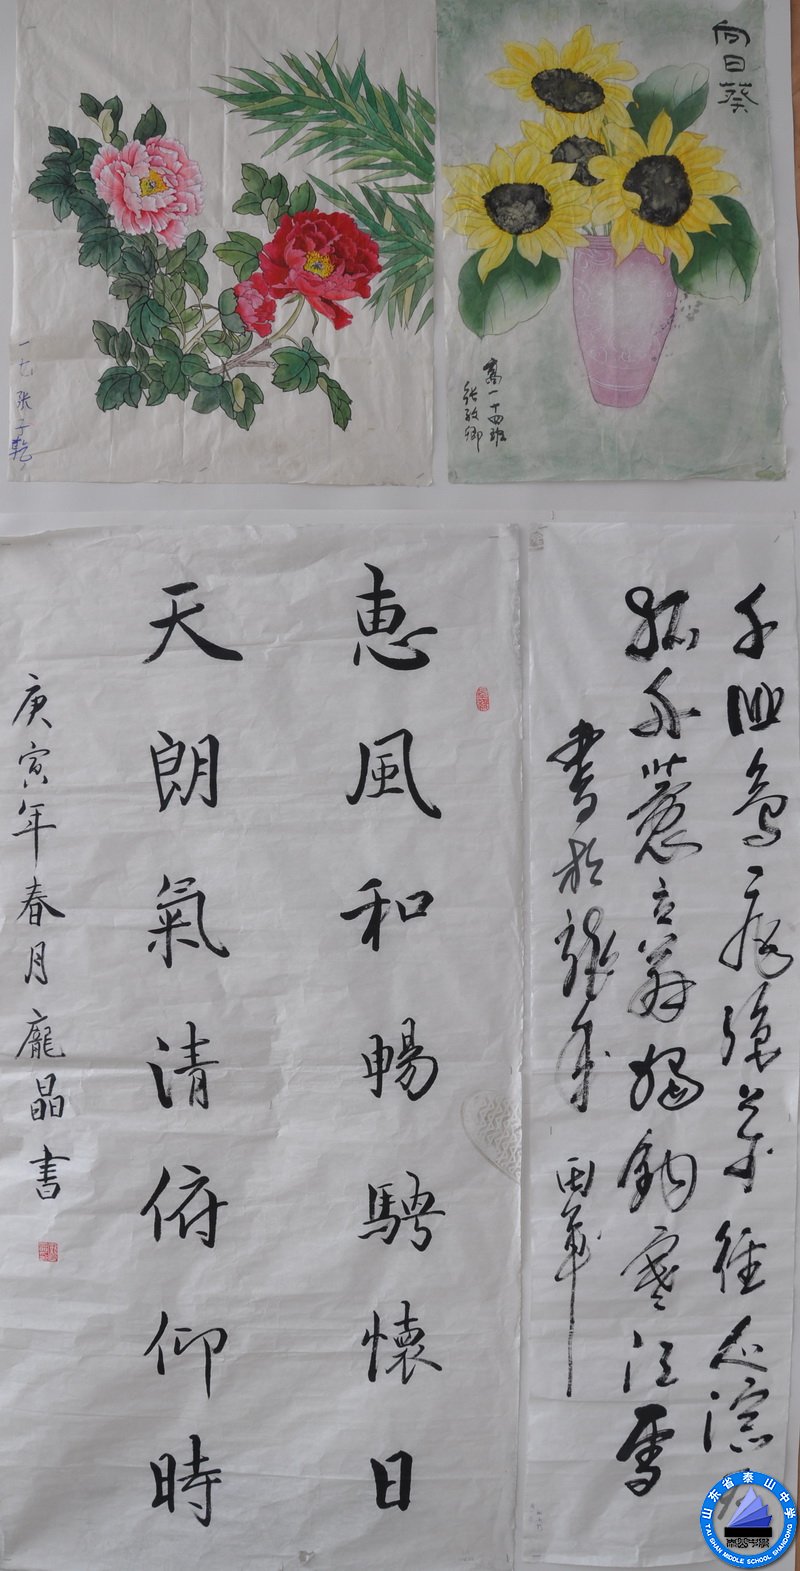 一七 张子乾
向日葵
高一十四班
千山鳥飛絕萬徑人踪
孤舟蓑笠翁獨釣寒江雪
書於
惠風和暢騁懷日
天朗氣清俯仰時
庚寅年春月龐晶書
山东省泰山中学
TAI SHAN MIDDLE SCHOOL SHANDONG